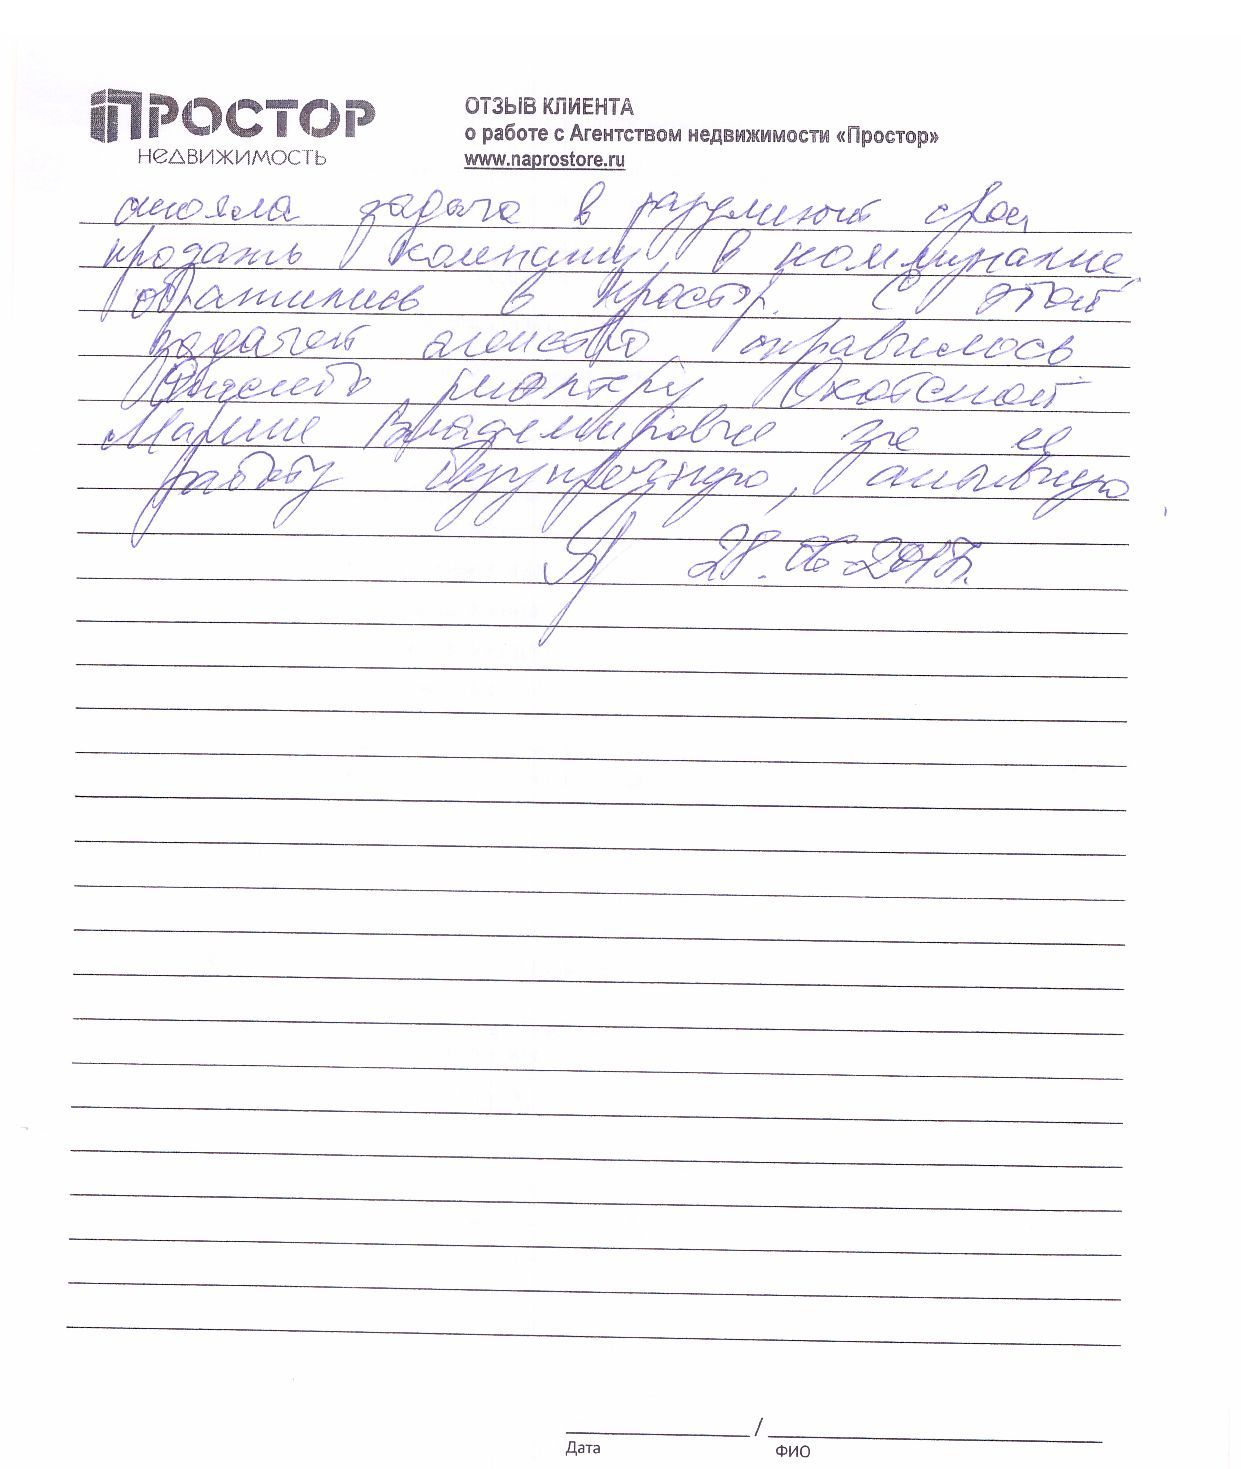 ПРОСТОР
НЕДВИЖИМОСТЬ
ОТЗЫВ КЛИЕНТА
о работе с Агентством недвижимости «Простор»
www.naprostore.ru
стояла задача в разумный срок
продать комнату в коммуналке,
обратились в простор. С этой
задачей агенство справилось
риэлтеру Охотской
Марине Владимировне за ее
работу безупречную, активную
28.06.2017г.
/
Дата ФИО